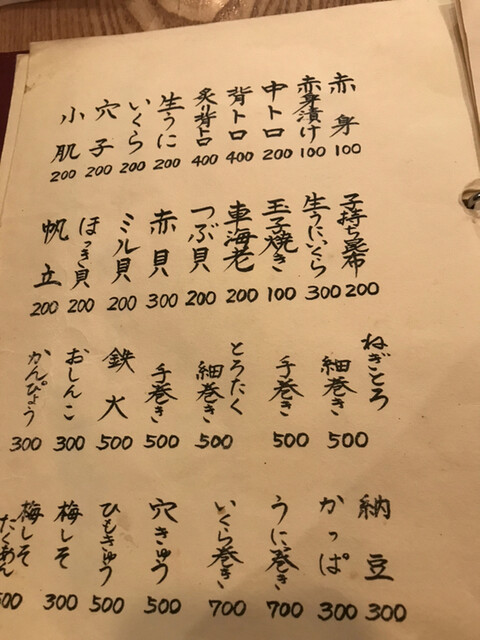 赤身
100
赤身漬け
100
中トロ
200
背トロ
400
炙り背トロ
400
生うに
200
いくら
200
穴子
200
小肌
200
子持ち昆布
200
生うにいくら
300
玉子焼き
100
車海老
200
つぶ貝
200
赤貝
300
ミル貝
200
ほっき貝
200
帆立
200
ねぎとろ
細巻き
500
手巻き
500
とろたく
細巻き
500
手巻き
500
鉄火
500
おしんこ
300
かんぴょう
300
納豆
300
かっぱ
300
うに巻き
700
いくら巻き
700
穴きゅう
500
ひもきゅう
500
梅しそ
300
梅しそ
たくあん